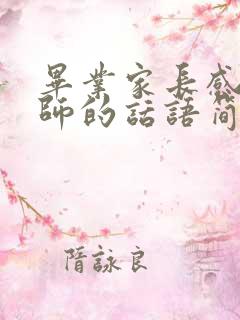 畢業家長感
師的話語简
隋詠良